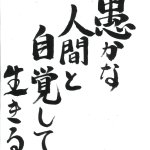 愚かな
人間と
自覚して
生きる